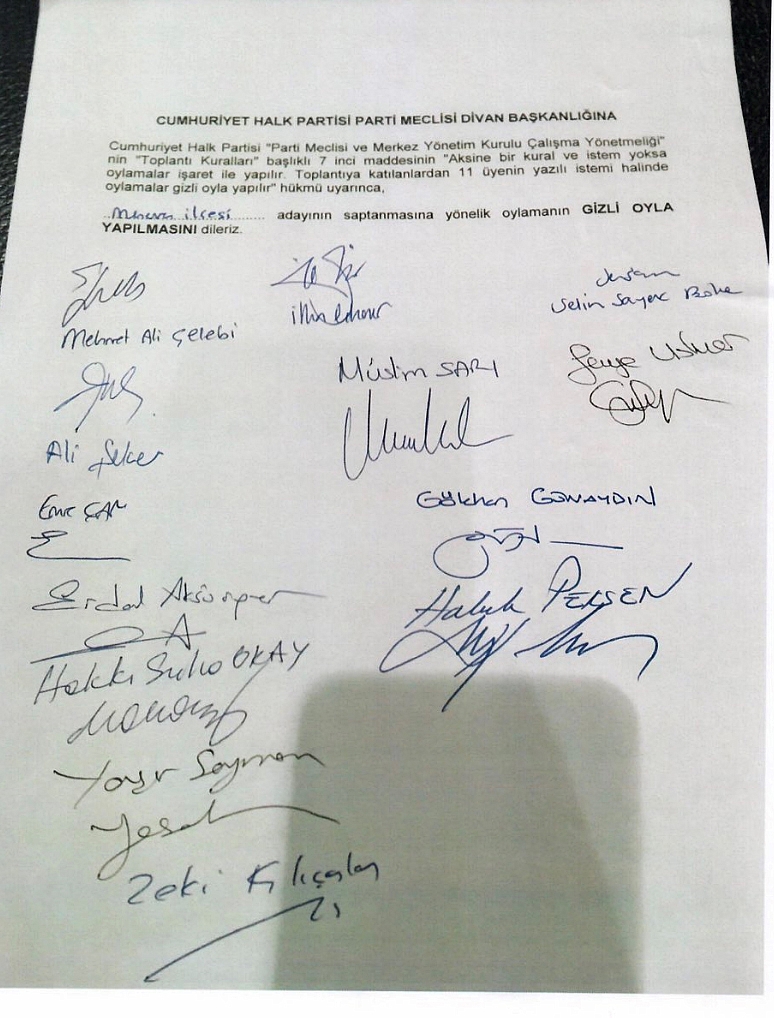 CUMHURİYET HALK PARTİSİ PARTİ MECLİSİ DİVAN BAŞKANLIĞINA
Cumhuriyet Halk Partisi "Parti Meclisi ve Merkez Yönetim Kurulu Çalışma Yönetmeliği"
nin "Toplantı Kuralları" başlıklı 7 inci maddesinin "Aksine bir kural ve istem yoksa
oylamalar işaret ile yapılır. Toplantıya katılanlardan 11 üyenin yazılı istemi halinde
oylamalar gizli oyla yapılır" hükmü uyarınca,
ilçesi adayının saptanmasına yönelik oylamanın GİZLİ OYLA
YAPILMASINI dileriz.
Selin Sayek Böke
Mehmet Ali Çelebi
Müslim SARI
Ali Şeker
Gökhan GÜNAYDIN
Emre ÇAM
Haluk PEKŞEN
Erdal Aksünger
Hakkı Suha OKAY
Yaşar Seyman
Zeki Kılıçaslan